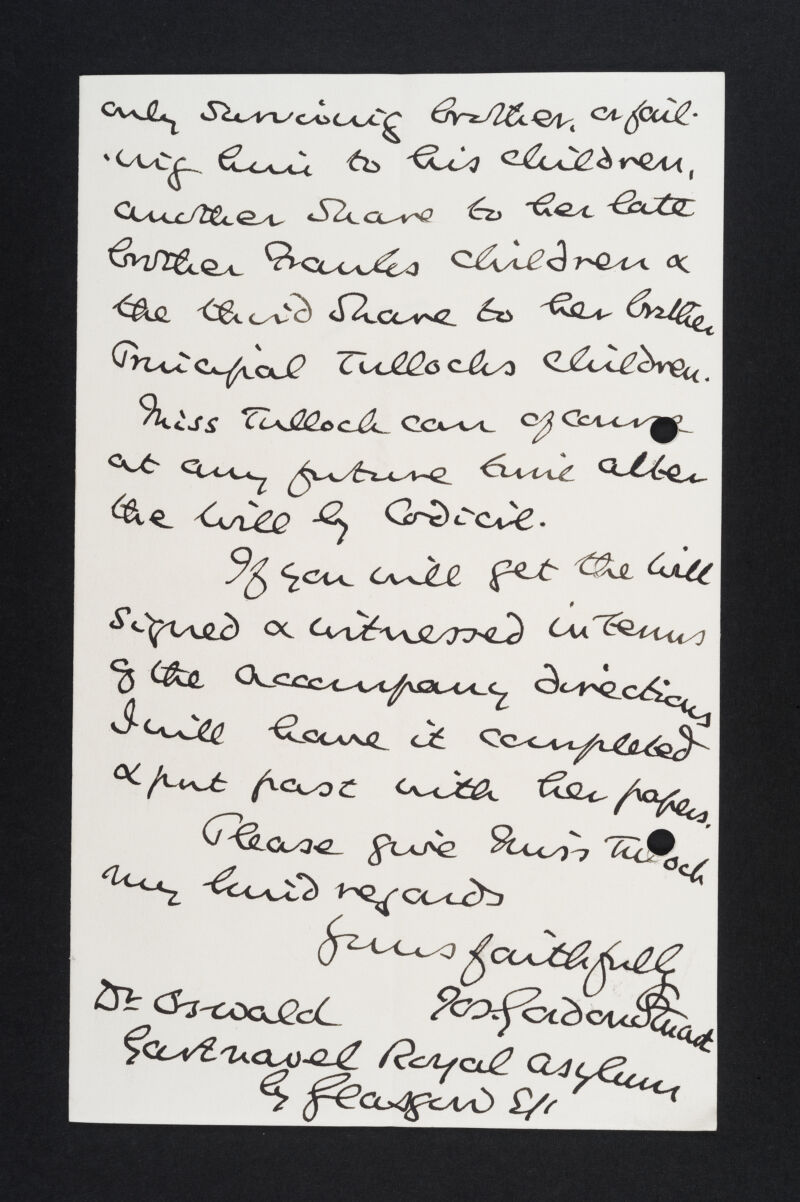 only surviving brother, or fail-
-ing him to his children,
another share to her late
brother Franks children &
the third share to her brother
Principal Tullochs children.
Miss Tulloch can of course
at any future time alter
the will by Codicil.
If you will get the will
signed & witnessed in terms
of the accompany directions
I will have it completed
& put past with her papers.
Please give Miss Tulloch
my kind regards
yours faithfully
Dr Oswald Jas. Gordon Stuart
Gartnavel Royal Asylum
by Glasgow